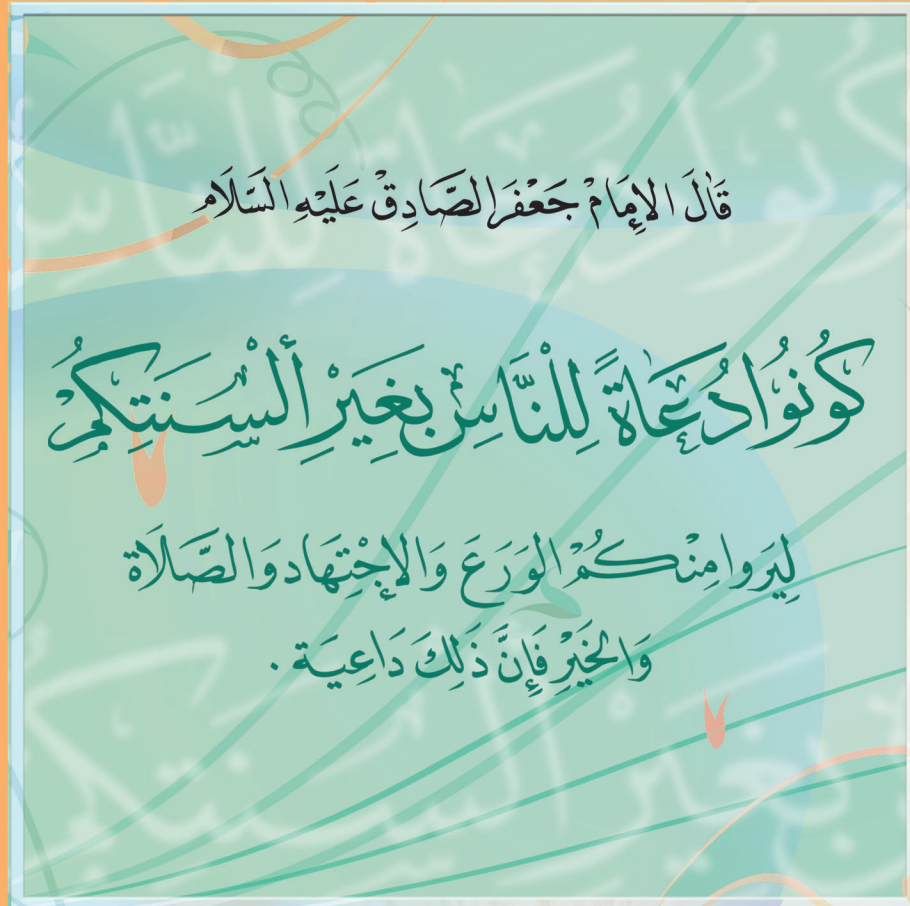 قَالَ الإِمَامْ جَعْفَر الصَّادِقْ عَلَيْهِ السَّلَام
كُونُوا دُعَاةً لِلْنَّاسِ بِغَيْرِ أَلْسِنَتِكُمْ
لِيَروا مِنْكُمْ الوَرَعَ وَالاِجْتِهَاد وَالصَّلَاة
وَالخَيْرِ فَإِنَّ ذَلِكَ دَاعِيَة .